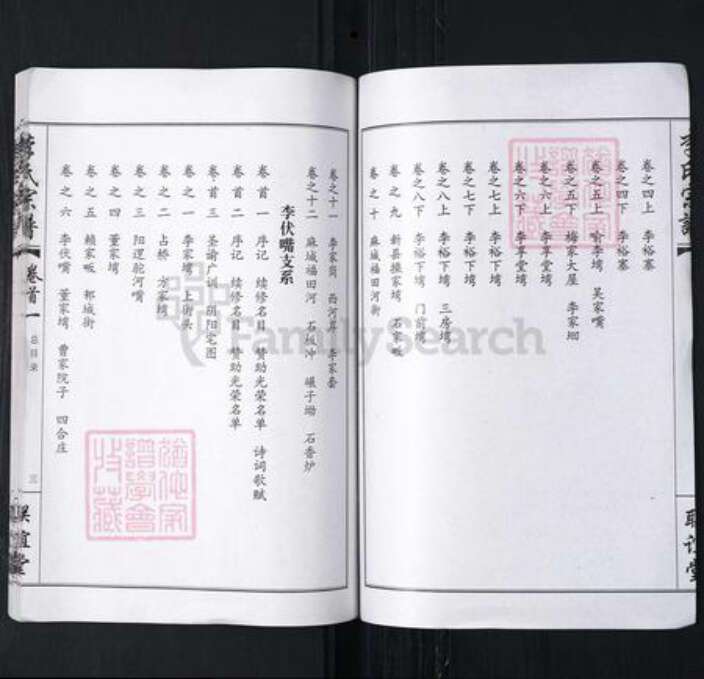 卷之四上 李裕寨
卷之四下 李裕寨
卷之五上 喻李塆 吴家嘴
卷之五下 梅家大屋 李家细
卷之六上 李草堂塆
卷之六下 李草堂塆
卷之七上 李裕下塆
卷之七下 李裕下塆
卷之八上 李裕下塆 三房塆
卷之八下 李裕下塆 门前塆
卷之九 新县操家塆 石家畈
卷之十 麻城福田河街
卷之十一 李家岗 西河岸 李家套
卷之十二 麻城福田河 石板冲 碾子坳 石香炉
李伏嘴支系
卷首一 序记 续修名目 赞助光荣名单 诗词歌赋
卷首二 序记 续修名目 赞助光荣名单
卷首三 圣谕广训 阴阳宅图
卷之一 李家塆 上街头
卷之二 占桥 方家塆
卷之三 阳逻驼河嘴
卷之四 董家塆
卷之五 赖家畈 邾城街
卷之六 李伏嘴 董家塆 曹家院子 四合庄
李氏宗谱
卷首一
总目录
三
联谊堂
FamilySearch